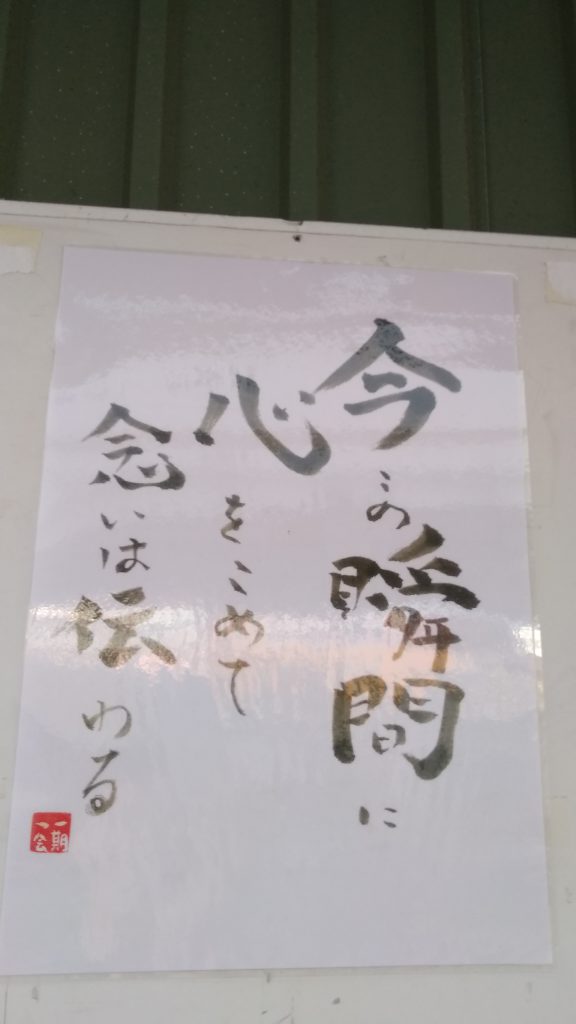 今この瞬間に
心をこめて
念いは伝わる
一期
一会